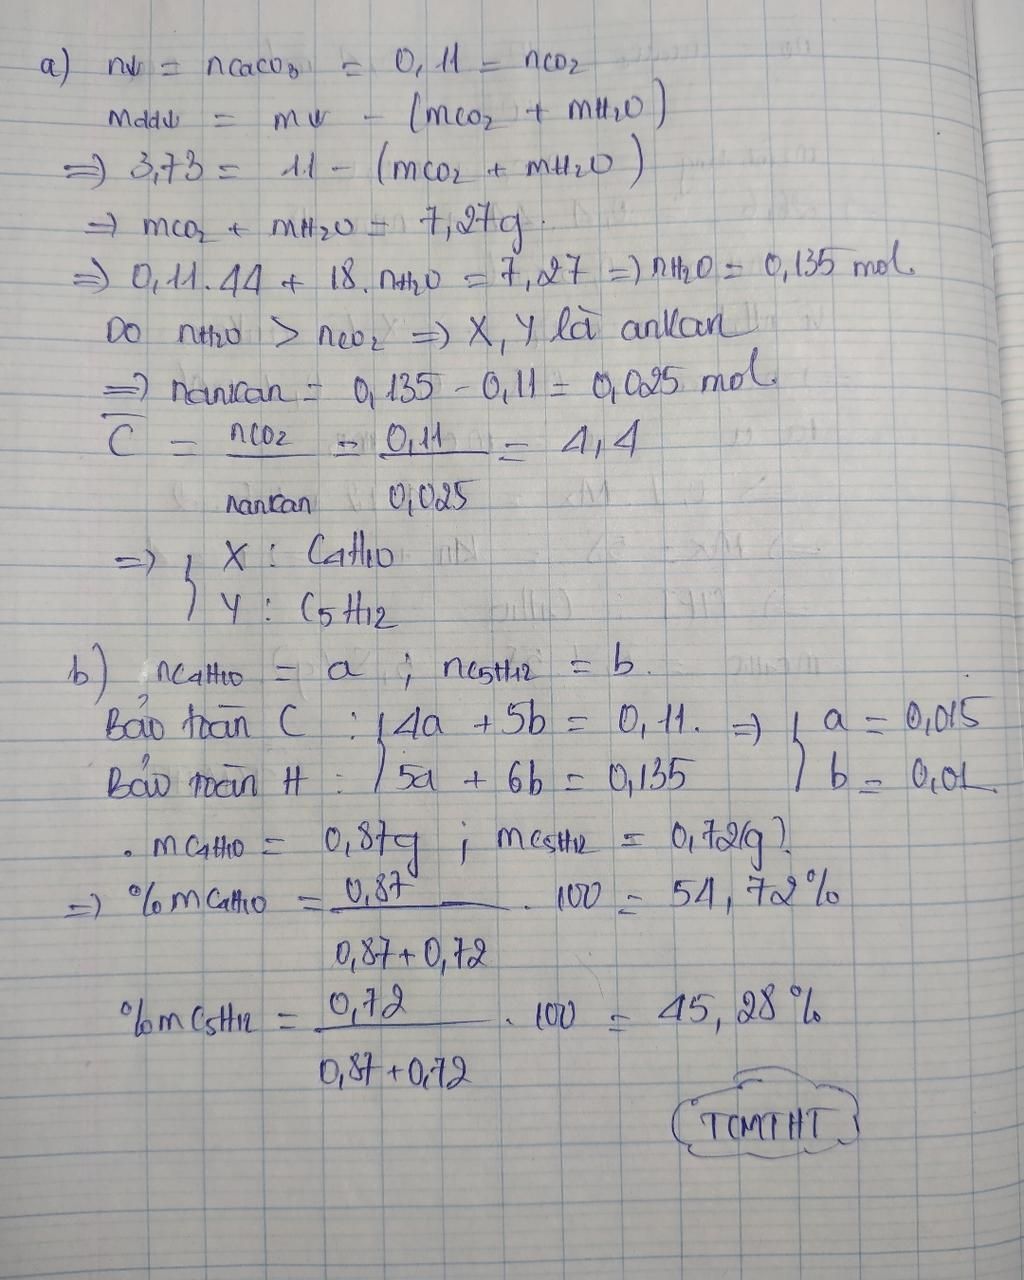 a) n↓ = nCaCO3 = 0,11 = nCO2
mdd↓ = m↓ - (mCO2 + mH2O)
=> 3,73 = 11 - (mCO2 + mH2O)
=> mCO2 + mH2O = 7,27g.
=> 0,11.44 + 18.nH2O = 7,27 => nH2O = 0,135 mol.
Do nH2O > nCO2 => X, Y là ankan
=> nankan = 0,135 - 0,11 = 0,025 mol.
C̅ = nCO2 / nankan = 0,11 / 0,025 = 4,4
=> { X : C4H10
Y : C5H12
b) nC4H10 = a ; nC5H12 = b.
Bảo toàn C : { 4a + 5b = 0,11. => { a = 0,015
Bảo toàn H : 5a + 6b = 0,135 b = 0,01
. mC4H10 = 0,87g ; mC5H12 = 0,72g
=> %mC4H10 = 0,87 / 0,87+0,72 . 100 = 54,72%
%mC5H12 = 0,72 / 0,87+0,72 . 100 = 45,28%
TCMTHT